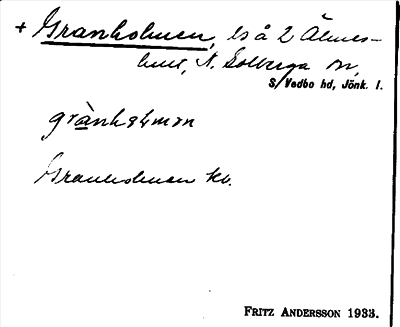 + Granholmen, ls å 2 Älmes-
hult, N. Solberga sn,
S. Vedbo hd, Jönk. l.
Granholmen kb.
FRITZ ANDERSSON 1933.